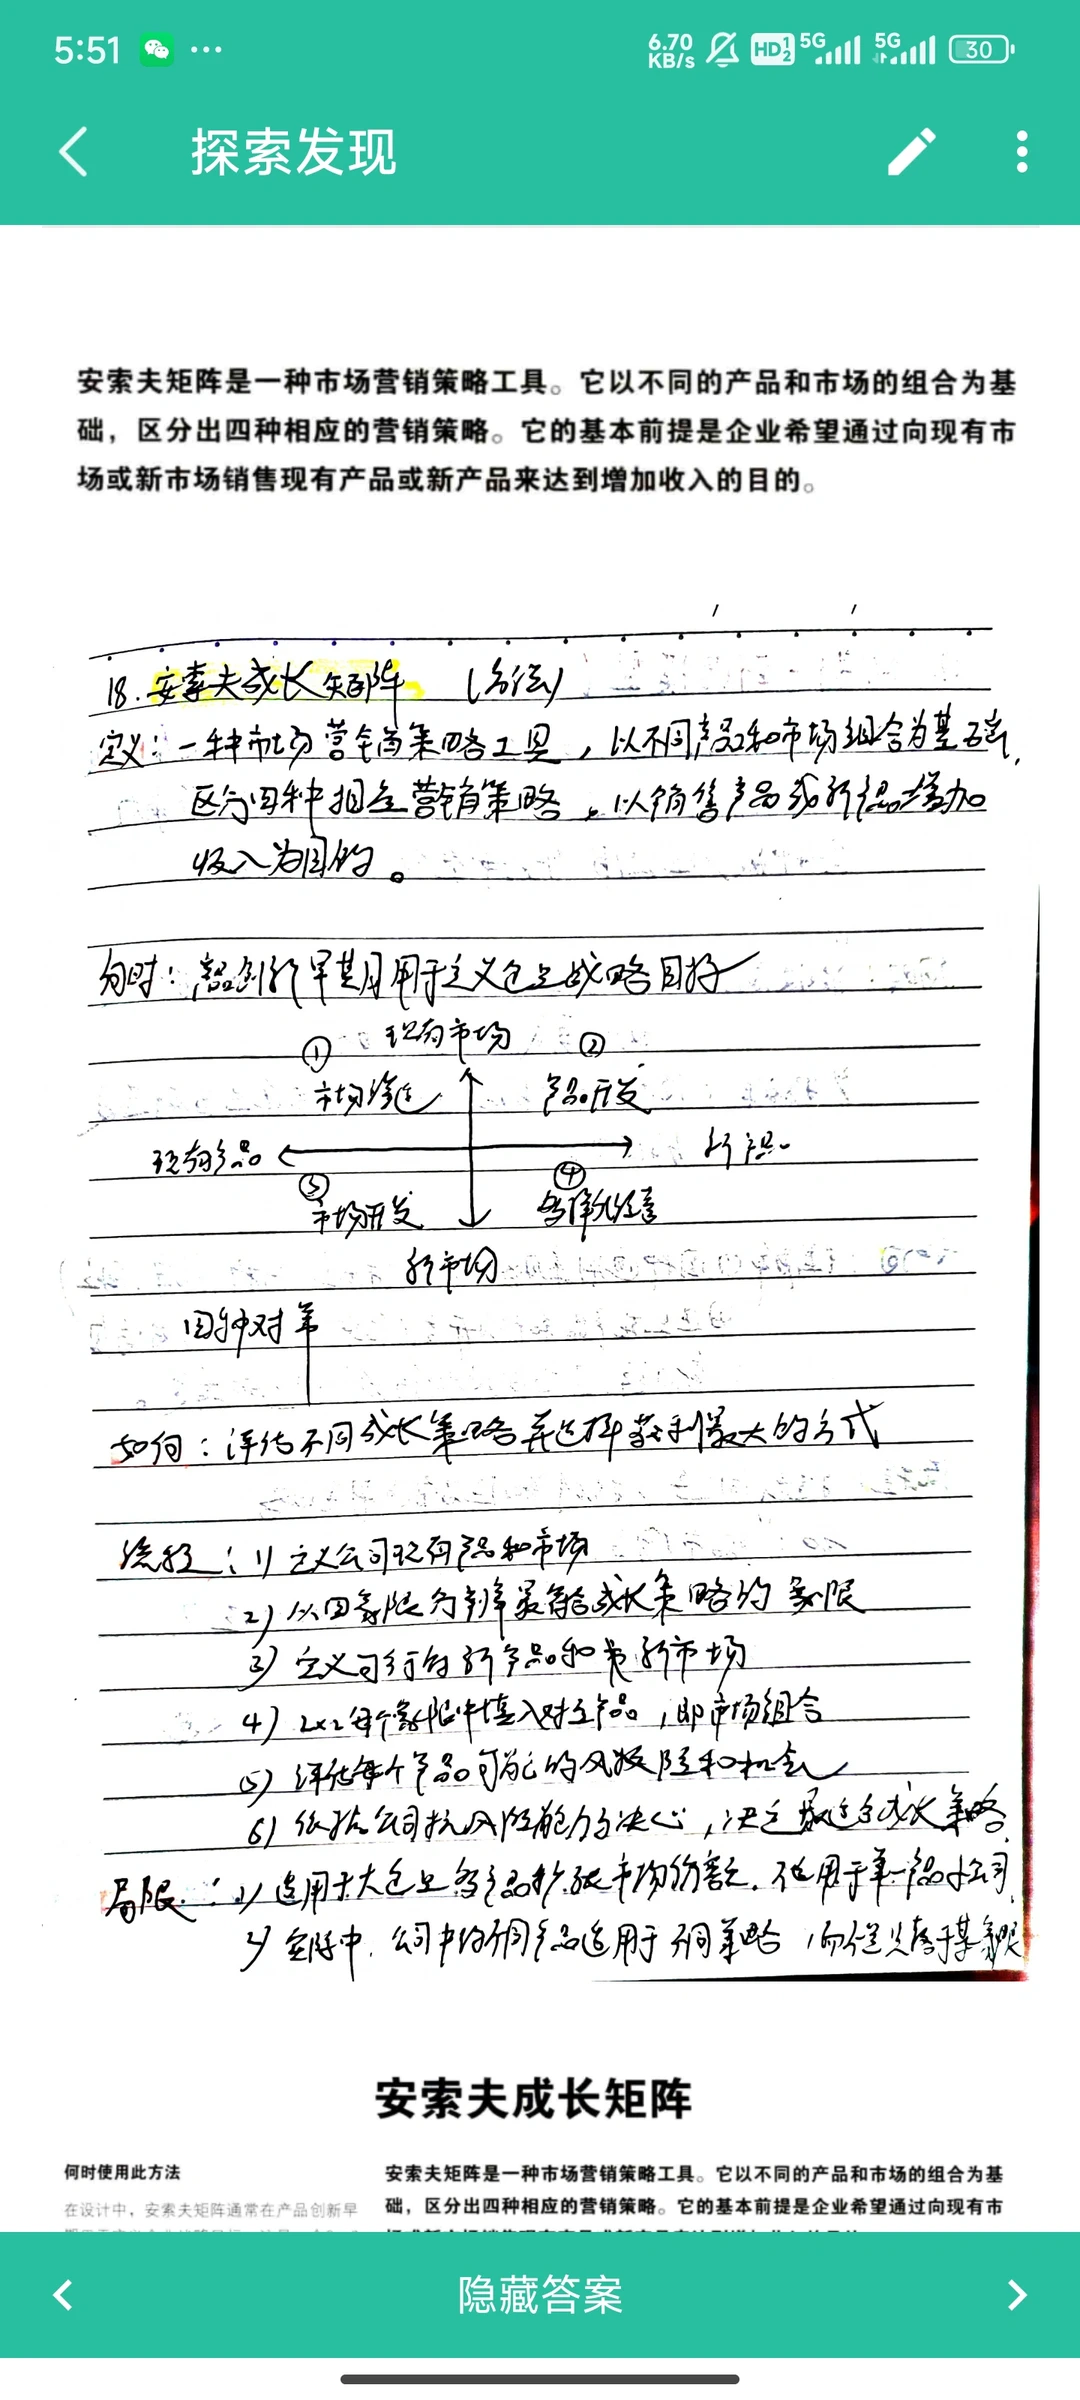 5:51
6.70 KB/s HD 1 2 5G 5G 30
探索发现
安索夫矩阵是一种市场营销策略工具。它以不同的产品和市场的组合为基
础，区分出四种相应的营销策略。它的基本前提是企业希望通过向现有市
场或新市场销售现有产品或新产品来达到增加收入的目的。
18. 安索夫成长矩阵 (方法)
定义：一种市场营销策略工具，以不同产品和市场组合为基础，
区分四种相应营销策略，以销售产品或新品增加
收入为目的。
何时：产品创新早期用于定义企业战略目标
① 现有市场 ②
市场渗透 产品开发
现有产品 新产品
③ ④
市场开发 多样化经营
新市场
四种对策
如何：评估不同成长策略并选择获利最大的方式
流程：1) 定义公司现有产品和市场
2) 从四象限分辨最符合成长策略的象限
3) 定义可行的新产品和新市场
4) 2x2每个象限中填入对应产品，即市场组合
5) 评估每个产品可能的风险和机会
6) 依据公司抗风险能力与决心，决定最适合成长策略
局限：1) 适用于大企业多产品扩张市场份额，不适用于单一产品小公司
2) 实际中，公司中的不同产品适用于不同策略，而不是只属于某象限
安索夫成长矩阵
何时使用此方法
在设计中，安索夫矩阵通常在产品创新早
安索夫矩阵是一种市场营销策略工具。它以不同的产品和市场的组合为基
础，区分出四种相应的营销策略。它的基本前提是企业希望通过向现有市
隐藏答案